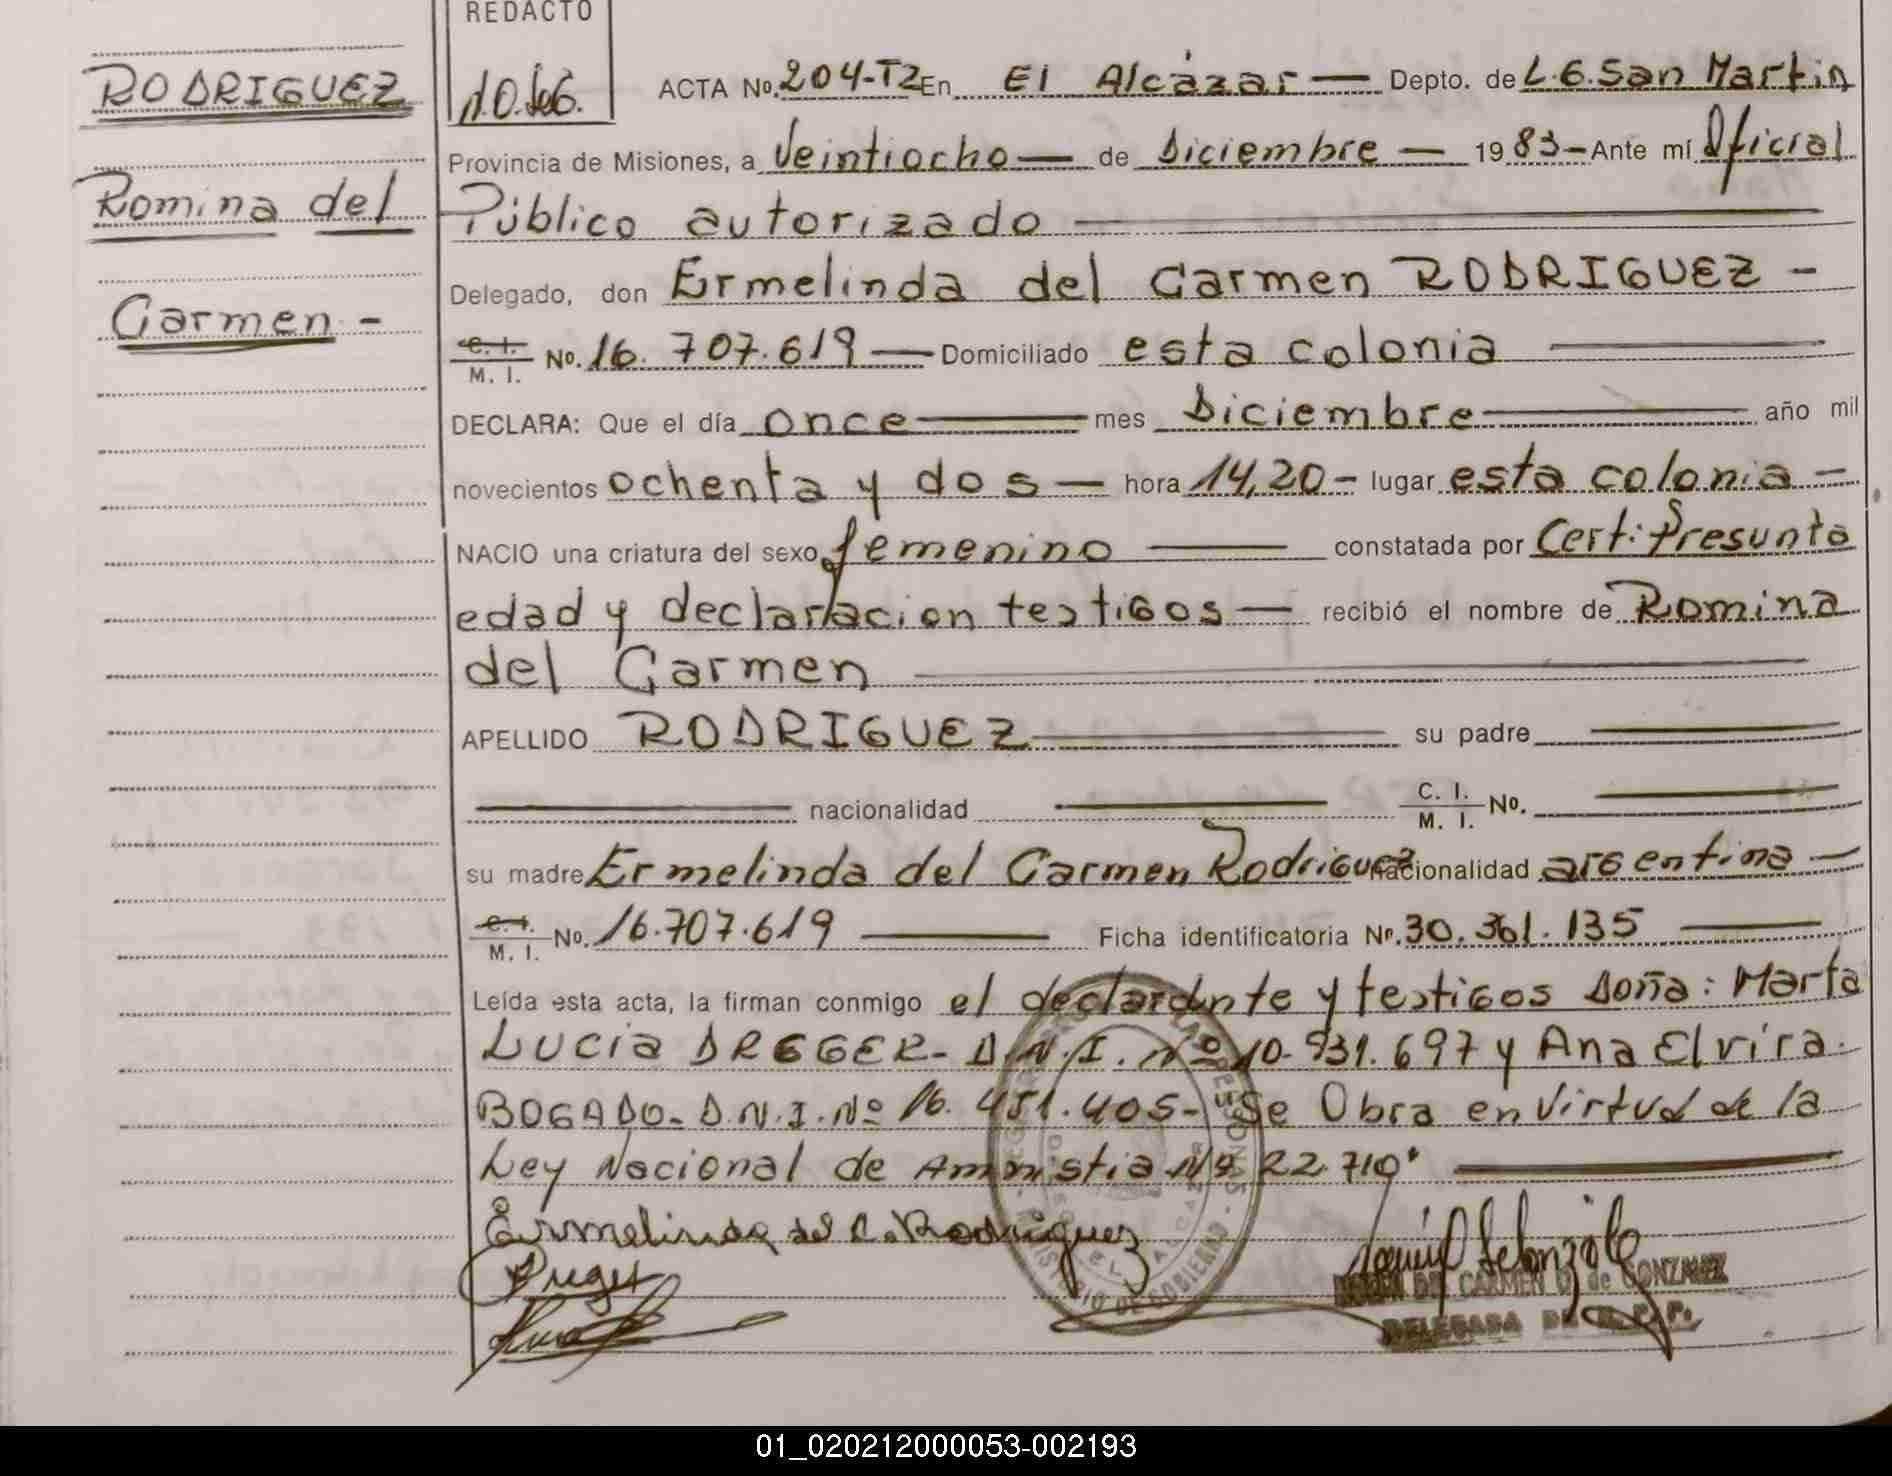 REDACTO
RODRIGUEZ
Romina del
Carmen -
ACTA No. 204-T2 En El Alcázar — Depto. de L.G. San Martin
Provincia de Misiones, a Veintiocho — de Diciembre — 1983 — Ante mí Oficial
Público autorizado
Delegado, don Ermelinda del Carmen RODRIGUEZ -
C. I. / M. I. No. 16.707.619 — Domiciliado esta colonia
DECLARA: Que el día once — mes Diciembre — año mil
novecientos ochenta y dos — hora 14,20 - lugar esta colonia -
NACIO una criatura del sexo femenino — constatada por Cert. Presunta
edad y declaracion testigos — recibió el nombre de Romina
del Carmen
APELLIDO RODRIGUEZ — su padre
nacionalidad C. I. / M. I. No.
su madre Ermelinda del Carmen Rodriguez nacionalidad argentina —
C. I. / M. I. No. 16.707.619 — Ficha identificatoria No. 30.361.135 —
Leída esta acta, la firman conmigo el declarante y testigos Doña: Marta
Lucia DREGER - D.N.I. Nº 10.931.697 y Ana Elvira
BOGADO - D.N.I. Nº 16.451.405 - Se Obra en Virtud de la
Ley Nacional de Amnistia Nº 22.710
Ermelinda del C. Rodriguez
DEL CARMEN de GONZALEZ
DELEGADA DE R. P. P.
MINISTERIO DE GOBIERNO
01_020212000053-002193